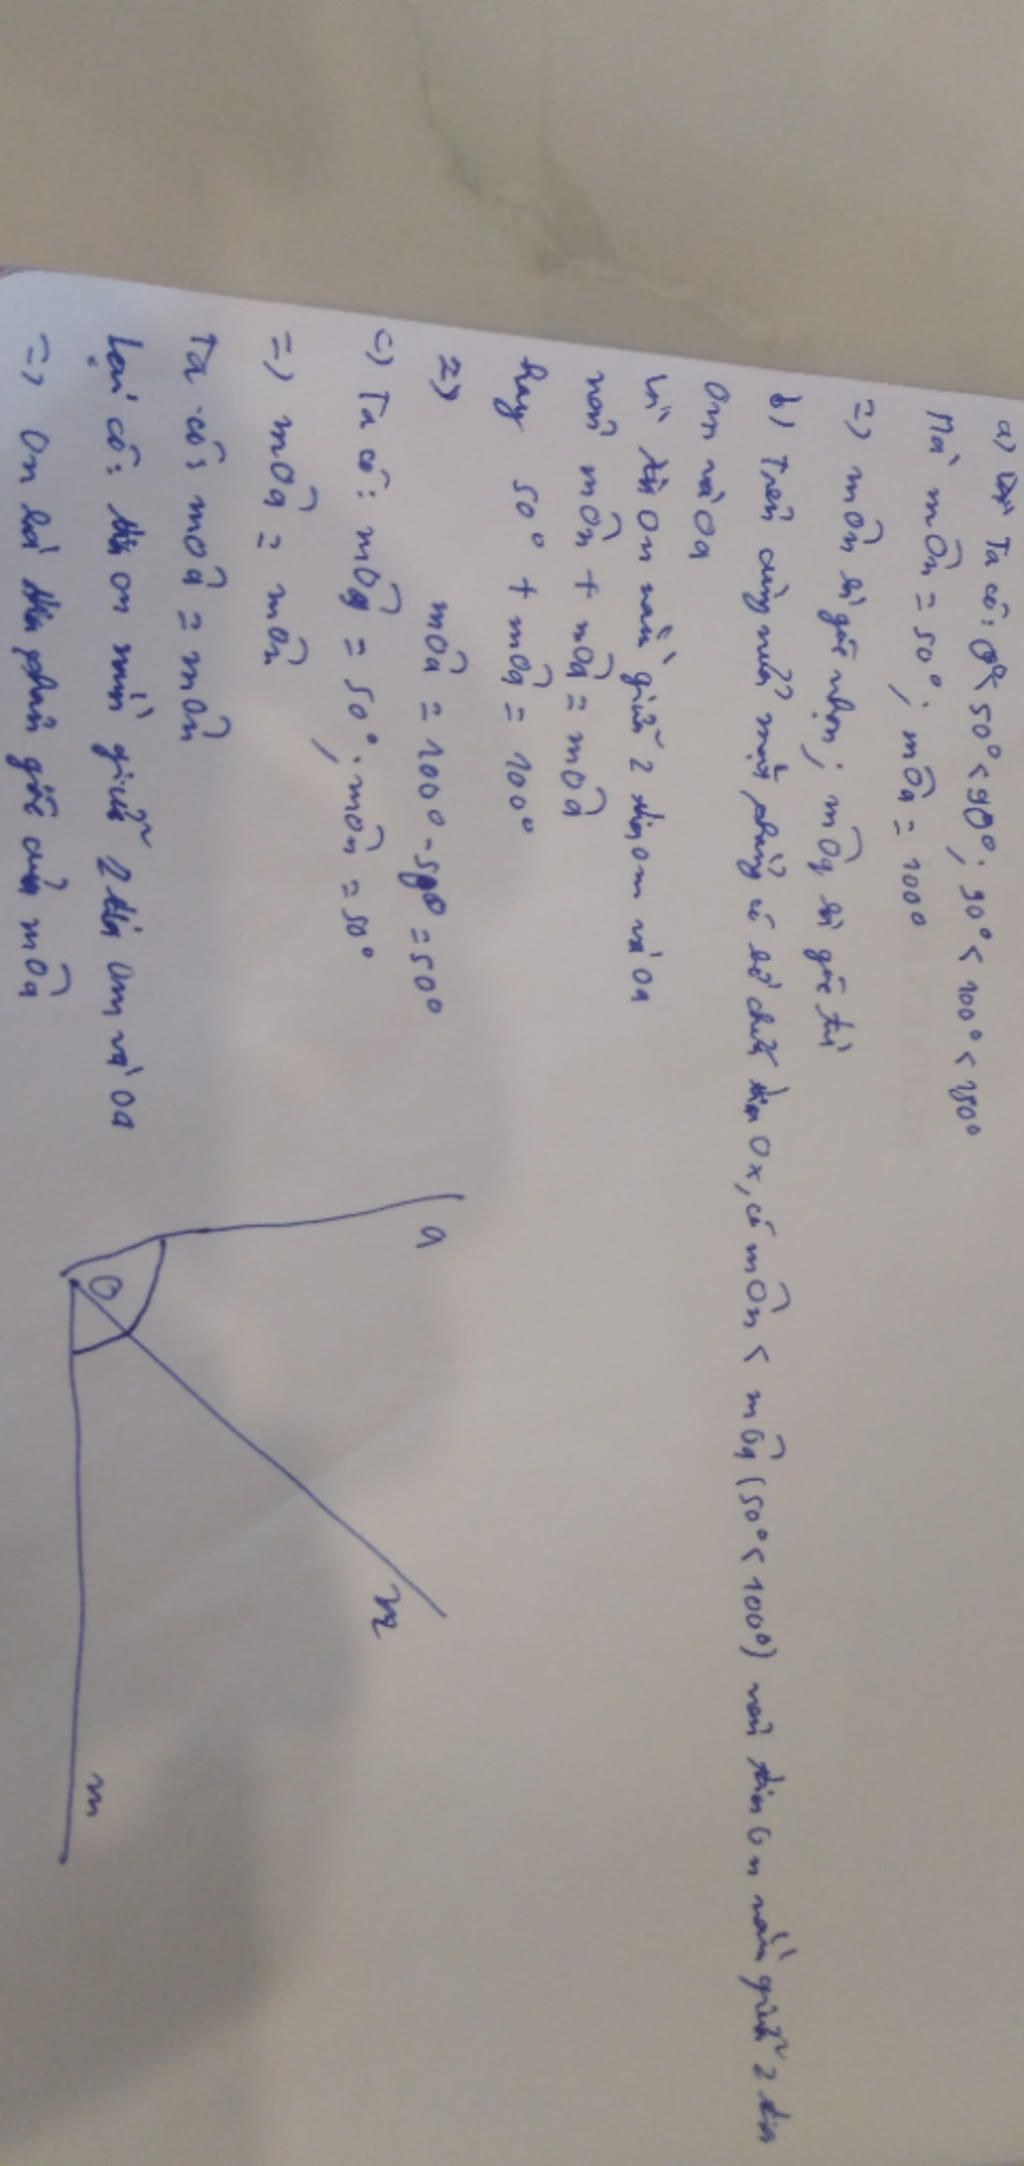 a) Ta có: 50° < 90°; 90° < 100° < 180°
Mà mÔn = 50°; mÔq = 100°
=) mÔn là góc nhọn; mÔq là góc tù
b) Trên cùng nửa mặt phẳng có bờ chứa tia Ox, có mÔn < mÔq (50° < 100°) nên tia On nằm giữa 2 tia
Om và Oq
Vì tia On nằm giữa 2 tia Om và Oq
nên mÔn + nÔq = mÔq
hay 50° + mÔq = 100°
=)
mÔq = 100° - 50° = 50°
c) Ta có: mÔq = 50°; mÔn = 50°
=) mÔq = mÔn
Ta có: mÔq = mÔn
Lại có: tia On nằm giữa 2 tia Om và Oq
=) On là tia phân giác của mÔq
q
O
n
m